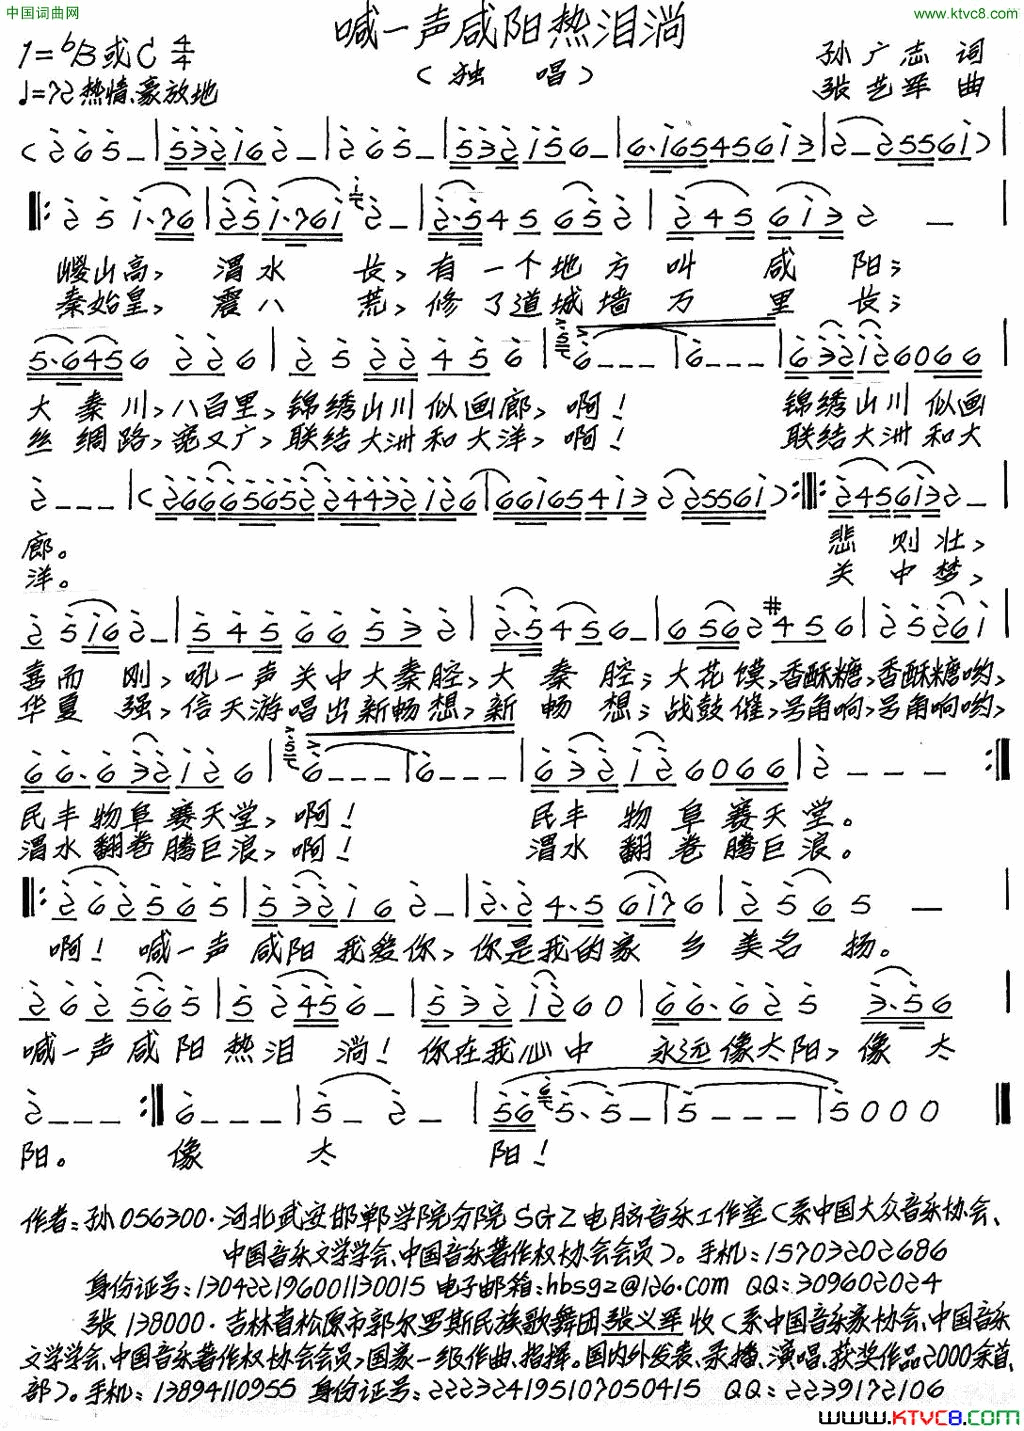 中国词曲网
www.ktvc8.com
喊一声咸阳热泪淌
(独 唱)
1=♭B或C 4/4
♩=72 热情、豪放地
孙广志 词
张艺军 曲
嵕山高, 渭水 长, 有一个地方叫 咸 阳;
秦始皇, 震八 荒, 修了道城墙万 里 长;
大秦川, 八百里, 锦绣山川似画廊, 啊! 锦绣山川似画
丝绸路, 宽又广, 联结大洲和大洋, 啊! 联结大洲和大
廊。 悲则壮,
洋。 关中梦,
喜而 刚, 吼一声关中大秦腔, 大 秦 腔; 大花馍, 香酥糖, 香酥糖哟,
华夏 强, 信天游唱出新畅想, 新 畅 想; 战鼓催, 号角响, 号角响哟,
民丰物阜赛天堂, 啊! 民丰物阜赛天堂。
渭水翻卷腾巨浪, 啊! 渭水翻卷腾巨浪。
啊! 喊一声咸阳我爱你, 你是我的家乡美名扬。
喊一声咸阳热泪 淌! 你在我心中 永远像太阳, 像太
阳。 像 太 阳!
作者:孙056300·河北武安邯郸学院分院SGZ电脑音乐工作室(系中国大众音乐协会、
中国音乐文学学会、中国音乐著作权协会会员)。手机:15703202686
身份证号:130422196001130015 电子邮箱:hbsgz@126.com QQ:309602024
张138000·吉林省松原市郭尔罗斯民族歌舞团张义军收(系中国音乐家协会、中国音乐
文学学会、中国音乐著作权协会会员,国家一级作曲、指挥。国内外发表、录播、演唱、获奖作品2000余首、
部)。手机:13894110955 身份证号:222324195107050415 QQ:2239172106
www.KTVC8.com